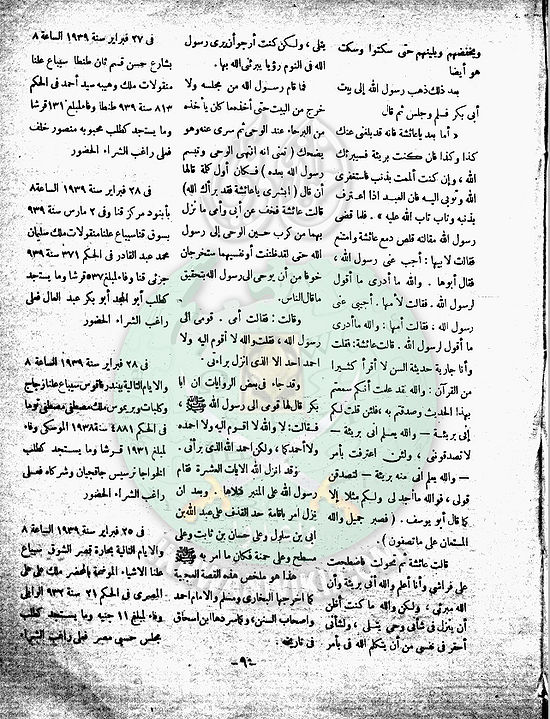 ويخفضهم ويلينهم حتى سكتوا وسكت
هو أيضا
بعد ذلك ذهب رسول الله إلى بيت
أبى بكر فسلم وجلس ثم قال
« أما بعد ياعائشة فانه قد بلغنى عنك
كذا وكذا فان كنت بريئة فسيبرئك
الله ، وإن كنت ألممت بذنب فاستغفرى
الله وتوبى اليه فان العبد اذا اعترف
بذنبه وتاب تاب الله عليه » . فلما قضى
رسول الله مقالته قلص دمع عائشة وامتنع
فقالت لابيها : أجب عنى رسول الله ،
فقال أبوها . والله ما أدرى ما أقول
لرسول الله . فقالت لأمها . أجيبى عنى
رسول الله ، فقالت أمها : والله ما أدرى
ما أقول لرسول الله . قالت عائشة : فقلت
وأنا جارية حديثة السن لا أقرأ كثيرا
من القرآن : والله لقد علمت أنكم سمعتم
بهذا الحديث وصدقتم به ، فلئن قلت لكم
إنى بريئة — والله يعلم انى بريئة —
لا تصدقونى ، ولئن اعترفت بأمر
— والله يعلم انى منه بريئة — لتصدقن
قولى ، فوالله ما أجد لى ولكم مثلا إلا
كما قال أبو يوسف . ( فصبر جميل والله
المستعان على ما تصفون ) .
قالت عائشة ثم تحولت فاضطجعت
على فراشى وأنا أعلم والله أنى بريئة وأن
الله مبرئى ، ولكن والله ما كنت أظن
أن ينزل فى شأنى وحى يتلى ، ولشأنى
أحقر فى نفسى من أن يتكلم الله فى بأمر
يتلى ، ولكن كنت أرجو أن يرى رسول
الله فى النوم رؤيا يبرئنى الله بها .
فما قام رسول الله من مجلسه ولا
خرج من البيت حتى أخذه ما كان يأخذه
من البرحاء عند الوحى ثم سرى عنه وهو
يضحك ( تعنى انه انتهى الوحى وتبسم
رسول الله بعده ) فكان أول كلة قالها
أن قال ( ابشرى ياعائشة فقد برأك الله )
قالت عائشة فخف عن أبى وأمى ما نزل
بهما من كرب حسين الوحى إلى رسول
الله حتى لقد ظننت أن نفسيهما ستخرجان
خوفا من أن يوحى الى رسول الله بتحقيق
ما قال الناس .
وقالت : فقالت أمى . قومى الى
رسول الله ، فقلت والله لا أقوم اليه ولا
احمد احد الا الذى انزل براءتى .
وقد جاء فى بعض الروايات ان ابا
بكر قال لها قومى الى رسول الله ﷺ ،
فقالت : لا والله لا اقوم اليه ولا احمده
ولا أحد كما ، ولكن احمد الله الذى برأنى .
وقد انزل الله الايات العشرة فقام
رسول الله على المنبر فتلاها . وبعد ان
نزل أمر باقامة حد القذف على عبد الله بن
ابى بن سلول وعلى حسان بن ثابت وعلى
مسطح وعلى حمنة فكان ما امر به ﷺ
هذا هو ملخص هذه القصة العجيبة
كما اخرجها البخارى ومسلم والامام احمد
واصحاب السنن ، وكما سردها ابن اسحاق
فى تاريخه .
فى ٢٧ فبراير سنة ١٩٣٩ الساعة ٨
بشارع حسن قسم ثان طنطا سيباع علنا
منقولات ملك وهيبه سيد أحمد فى الحكم
٨١٣ سنة ٩٣٩ طنطا وفاء لمبلغ ١٣١ قرشا
وما يستجد كطلب محبوبه منصور خلف
فعلى راغب الشراء الحضور
فى ٢٨ فبراير سنة ١٩٣٩ الساعة ٨
بأبنود مركز قنا وفى ٢ مارس سنة ٩٣٩
بسوق قنا سيباع علنا منقولات ملك سليان
محمد عبد القادر فى الحكم ٣٧١ سنة ٩٣٩
جزئى قنا وفاء لمبلغ ٥٣٧ قرشا وما يستجد
كطلب أبو المجد أبو بكر عبد العال فعلى
راغب الشراء الحضور
فى ٢٨ فبراير سنة ١٩٣٩ الساعة ٨
والايام التالية ببندر فاقوس سيباع علنا زجاج
وكلبات وبرميوس ملك مصطفى مصطفى توما
فى الحكم ٤٨٨١ سنة ١٩٣٨ الموسكى وفاء
لمبلغ ١٩٣١ قرشا وما يستجد كطلب
الخواجا نرسيس جاقجيان وشركاه فعلى
راغب الشراء الحضور
فى ٢٥ فبراير سنة ١٩٣٩ الساعة ٨
والايام التالية بحارة قصر الشوق سيباع
علنا الاشياء الموضحة بالمحضر ملك على على
المصرى فى الحكم ٢١ سنة ٩٣٢ الوايلى
وفاء لمبلغ ١١ جنيه وما يستجد كطلب
مجلس حسبى مصر فعلى راغب الشراء
— ٩ —